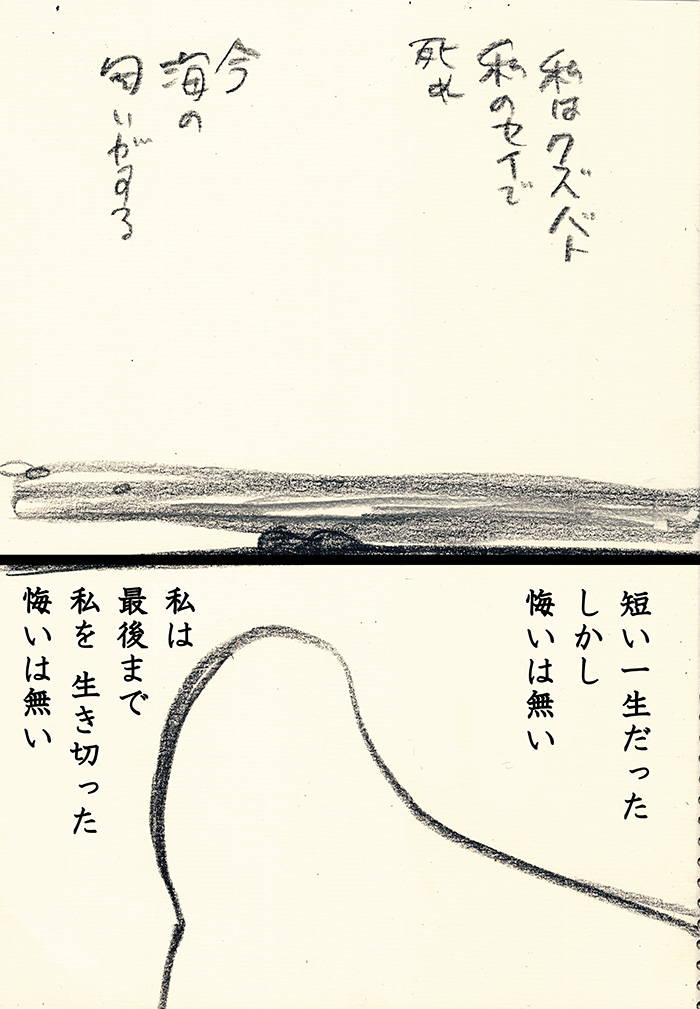 私はクズバト
私のセイで
死ね
今
海の
匂いがする
短い一生だった
しかし
悔いは無い
私は
最後まで
私を 生き切った
悔いは無い